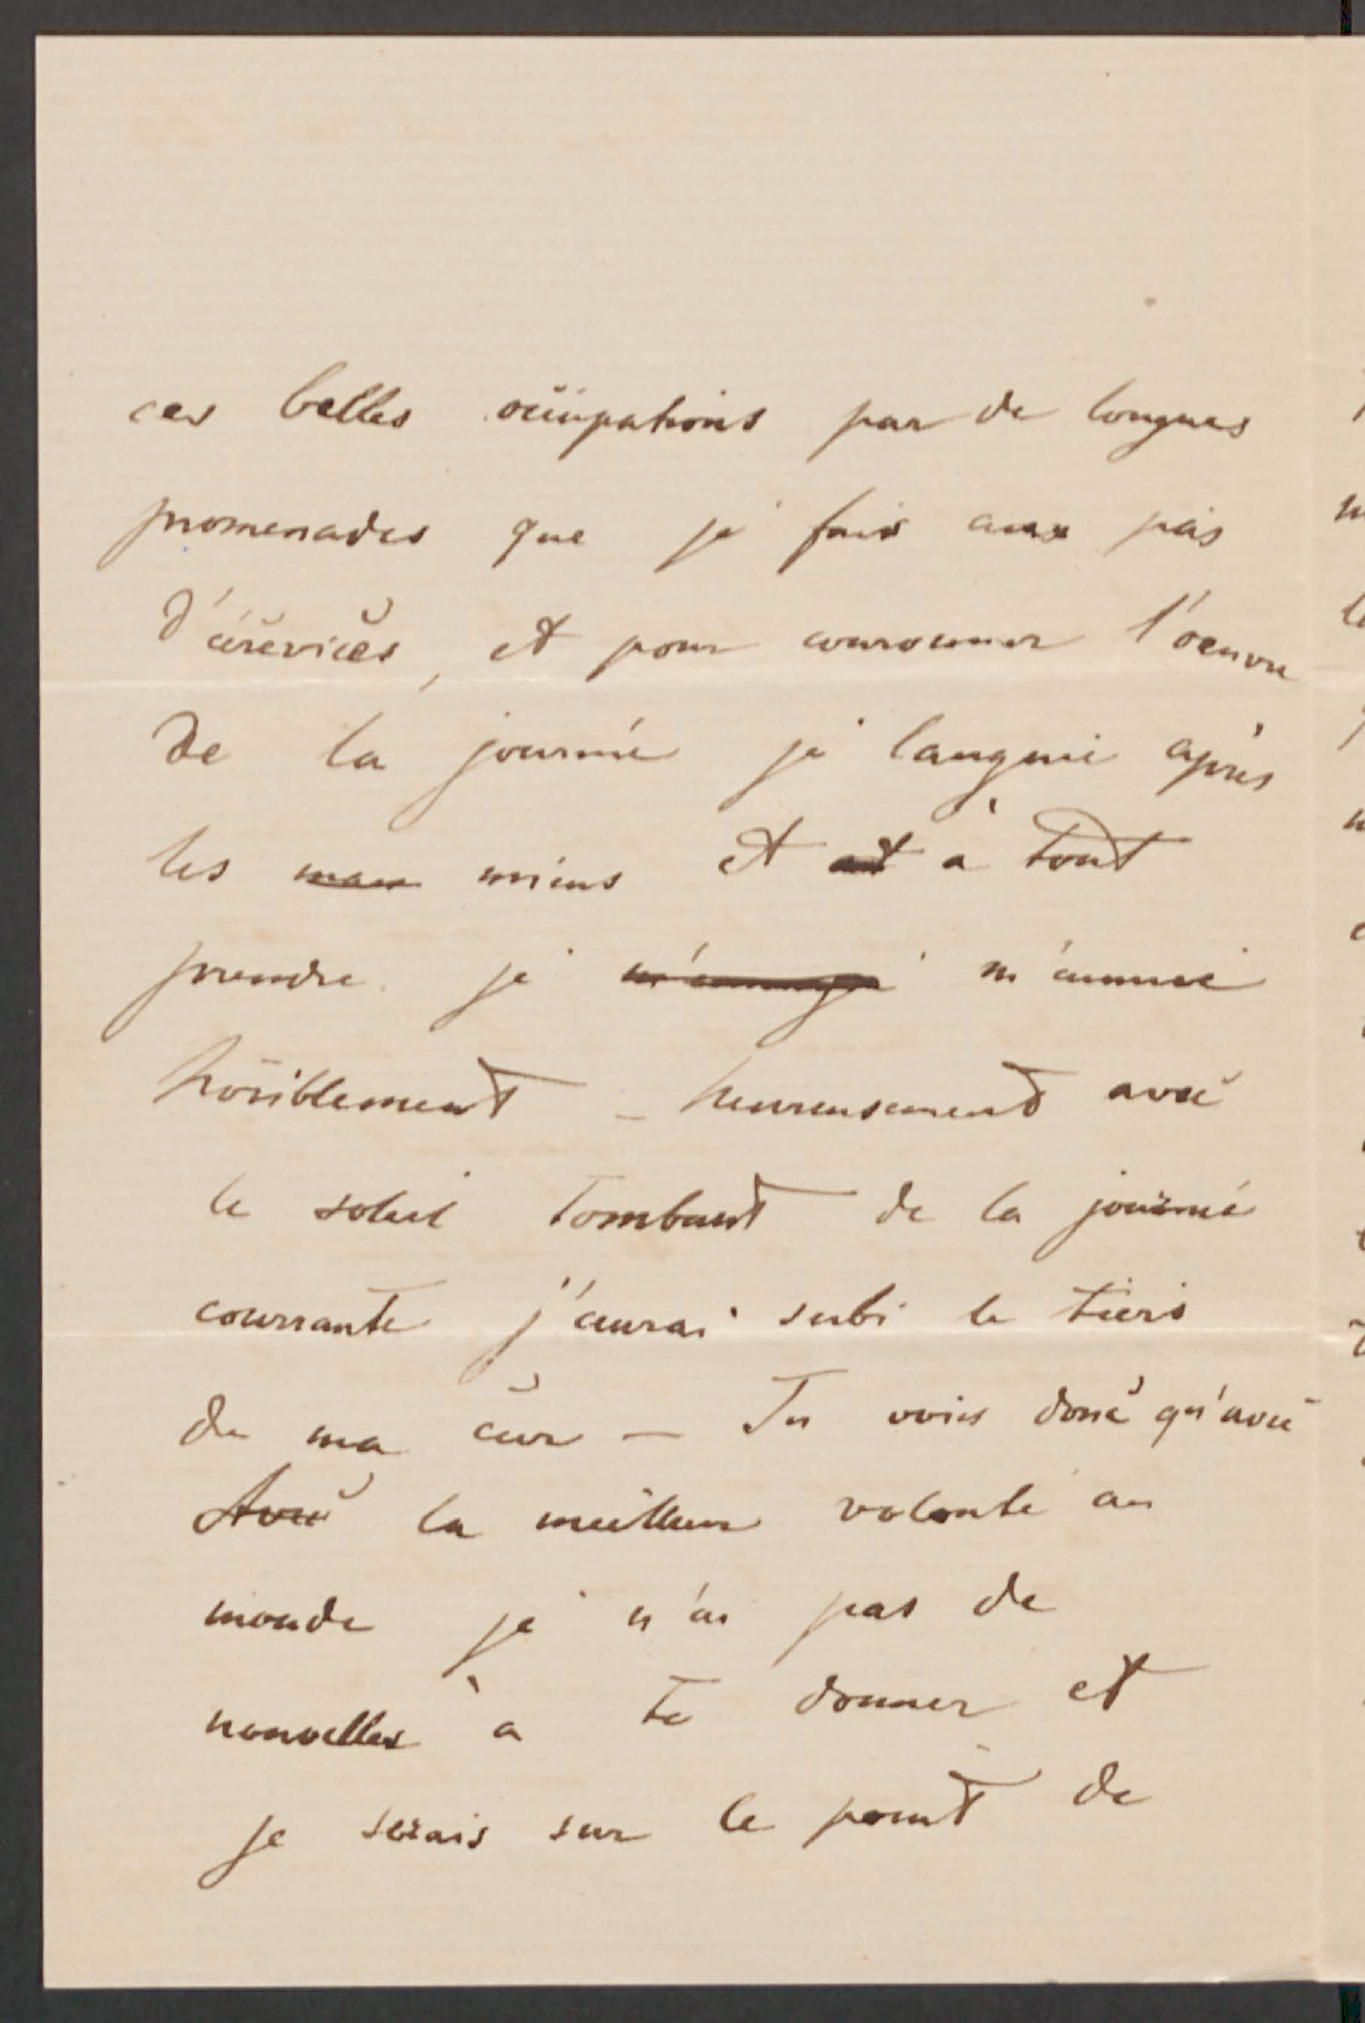 ces belles occupations par de longues
promenades que je fais aux pas
d'écrevices, et pour couronner l'oeuvre
de la journée je languie après
les miens et à tout
prendre je m'ennuie
horriblement – heureusement avec
le soleil tombant de la journée
courrante j'aurai subi le tiers
de ma cure – Tu vois donc qu'avec
Avec la meilleure volonté au
monde je n'ai pas de
nouvelles à te donner et
je serais sur le point de